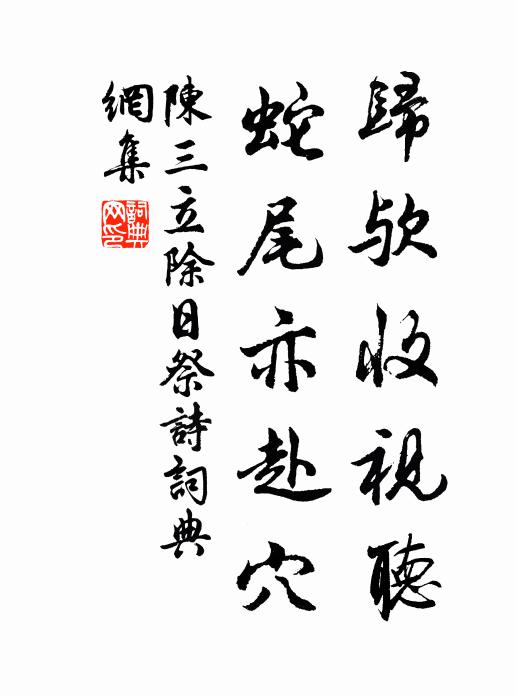 歸欤收視聽
蛇尾亦赴穴
陳三立除日祭詩詞典
網集
詞典
网印